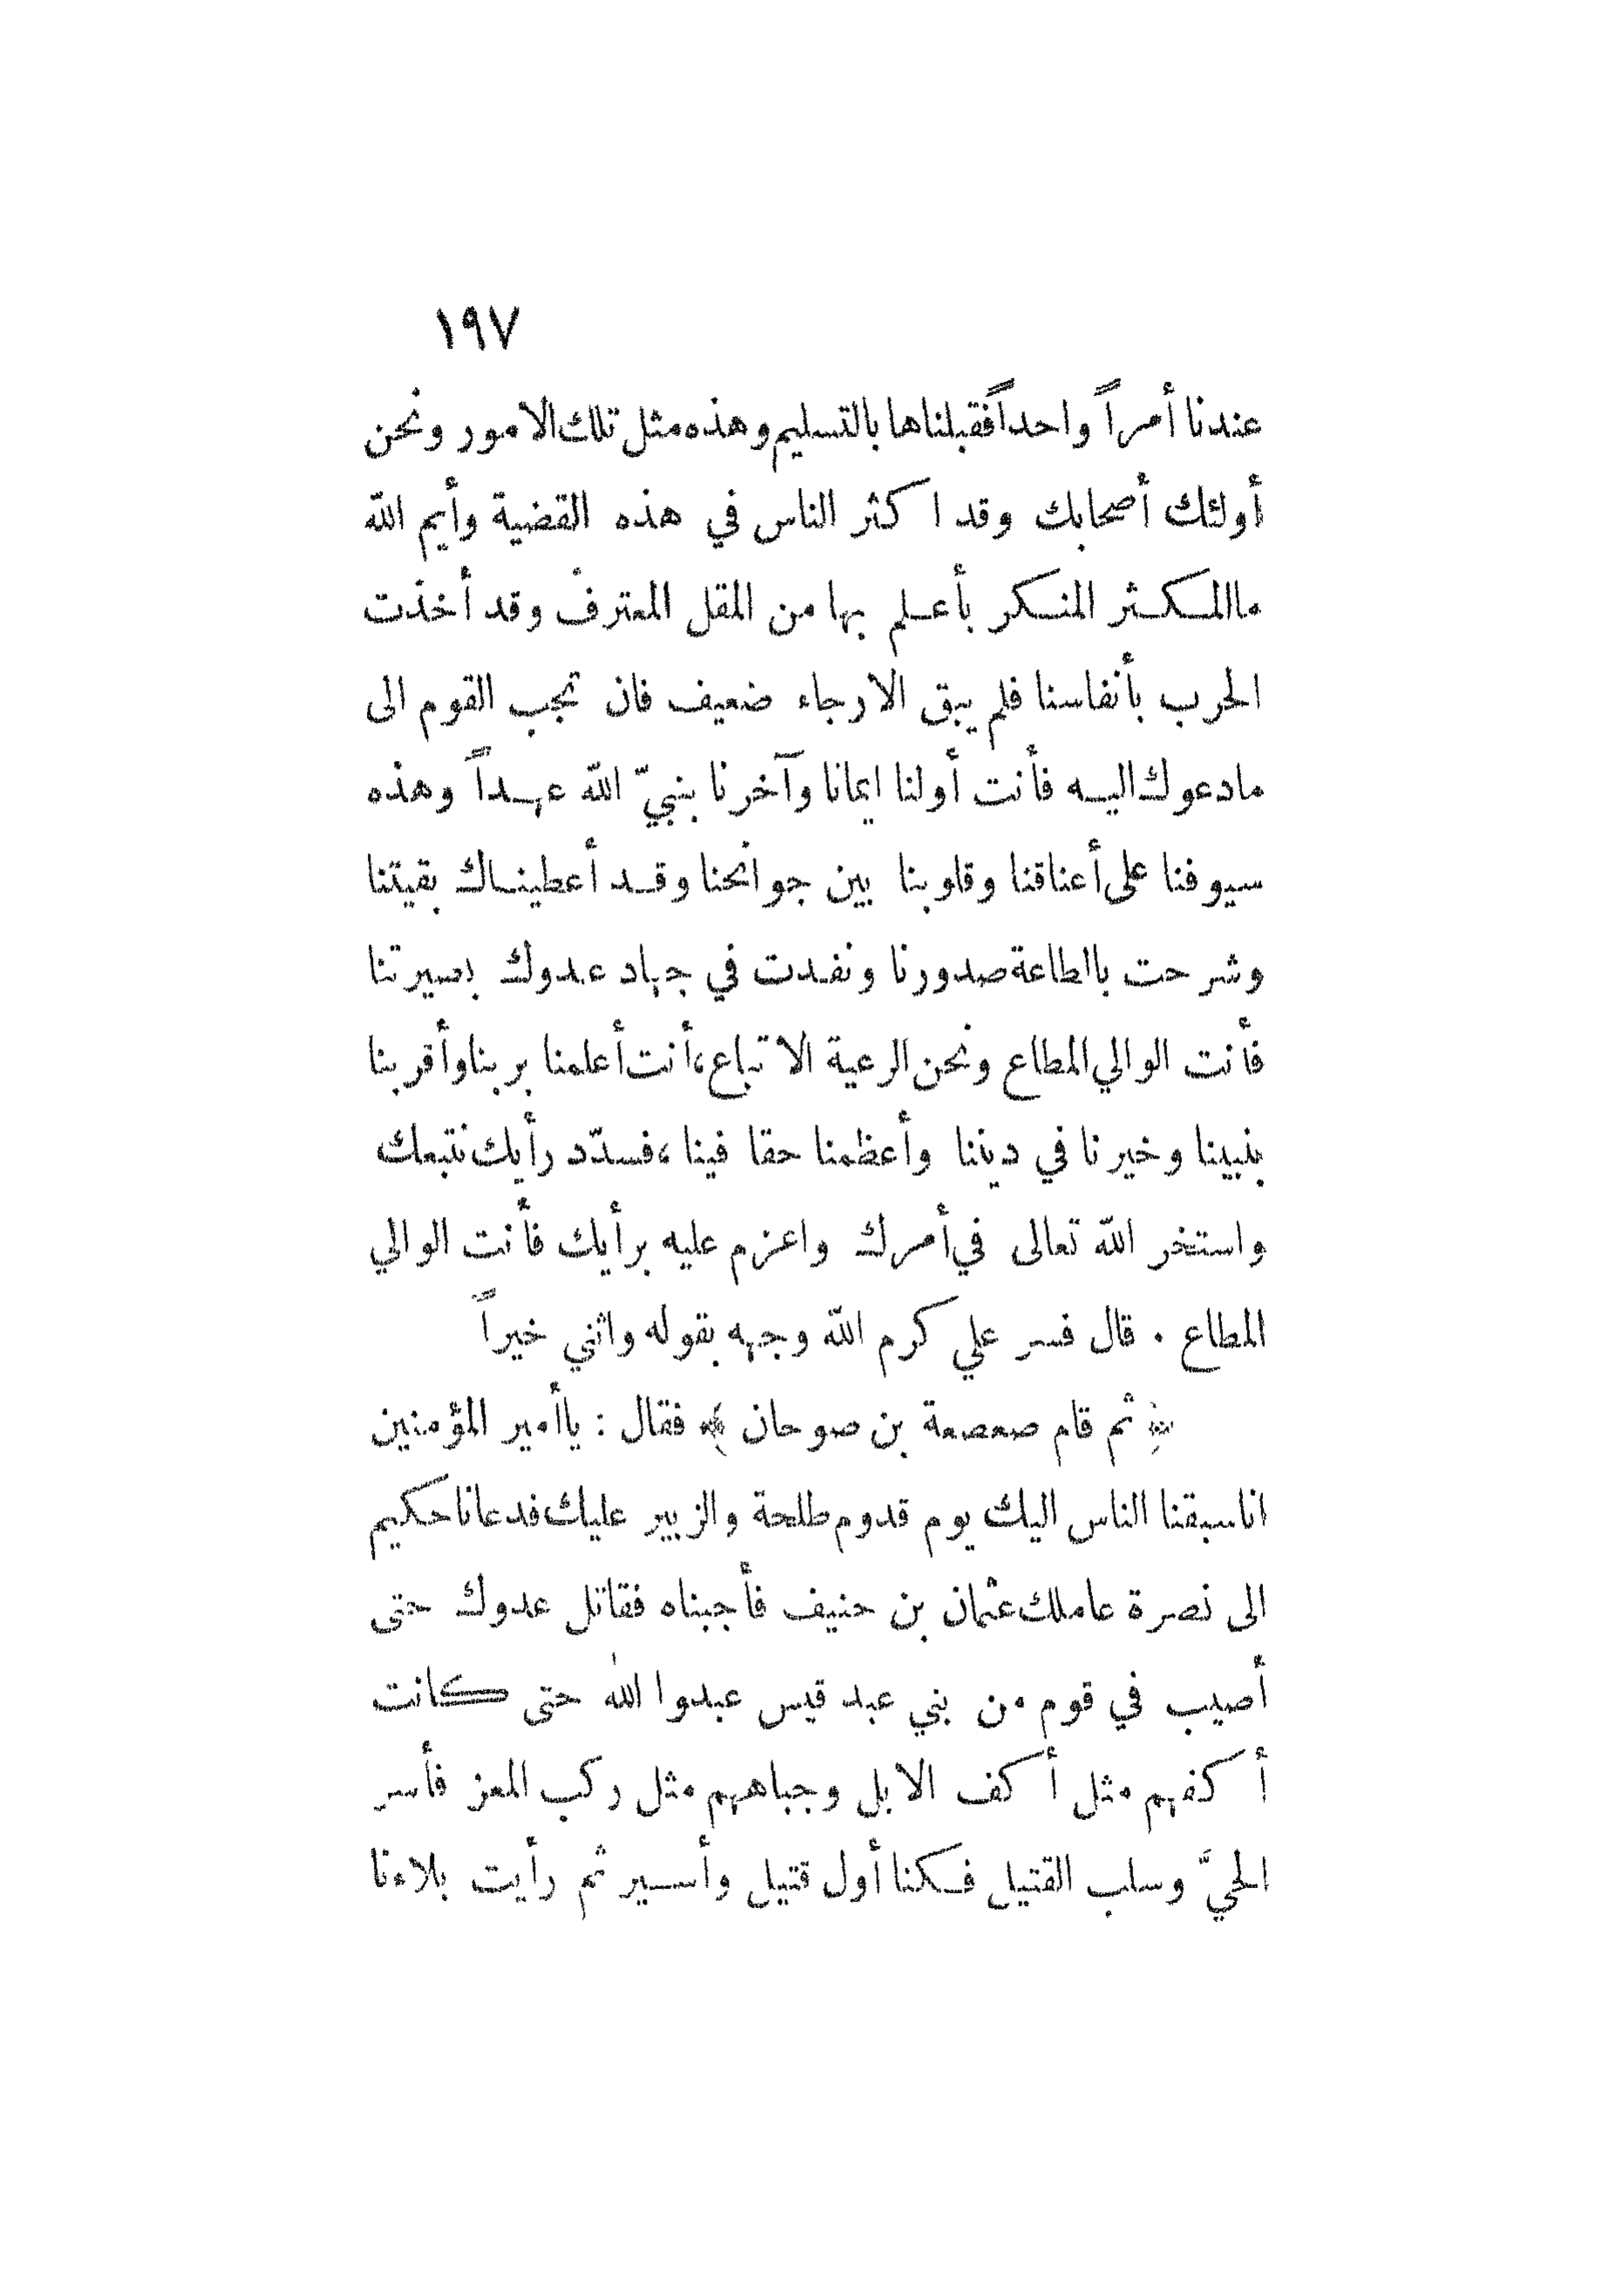 ١٩٧
عندنا أمراً واحداً فقبلناها بالتسليم وهذه مثل تلك الامور ونحن
أولئك أصحابك وقد اكثر الناس في هذه القضية وأيم الله
ماالمكثر المنكر بأعلم بها من المقل المعترف وقد أخذت
الحرب بأنفاسنا فلم يبق الارجاء ضعيف فان تجب القوم الى
مادعوك اليه فأنت أولنا ايمانا وآخرنا بنبيّ الله عهداً وهذه
سيوفنا على أعناقنا وقلوبنا بين جوانحنا وقد أعطيناك بقيتنا
وشرحت بالطاعة صدورنا ونفدت في جهاد عدوك بصيرتنا
فأنت الوالي المطاع ونحن الرعية الاتباع، أنت أعلمنا بربنا وأقربنا
بنبينا وخيرنا في ديننا وأعظمنا حقا فينا، فسدّد رأيك نتبعك
واستخر الله تعالى في أمرك واعزم عليه برأيك فأنت الوالي
المطاع . قال فسر علي كرم الله وجهه بقوله واثنى خيراً
﴿ ثم قام صعصعة بن صوحان ﴾ فقال : ياأمير المؤمنين
اناسبقنا الناس اليك يوم قدوم طلحة والزبير عليك فدعانا حكيم
الى نصرة عاملك عثمان بن حنيف فأجبناه فقاتل عدوك حتى
أصيب في قوم من بني عبد قيس عبدوا الله حتى كانت
أكفهم مثل أكف الابل وجباههم مثل ركب المعز فأسر
الحيّ وسلب القتيل فكنا أول قتيل وأسير ثم رأيت بلاءنا